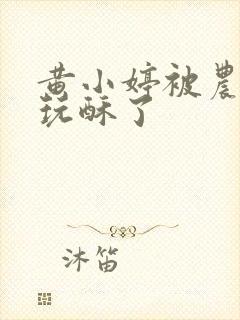 黄小婷被農
玩酥了
沐笛